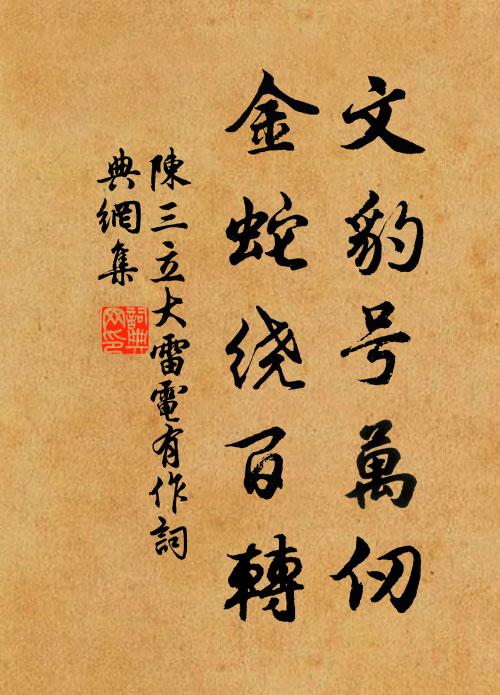 文豹号萬仞
金蛇绕百轉
陳三立大雷電有作詞
典網集
詞典网印